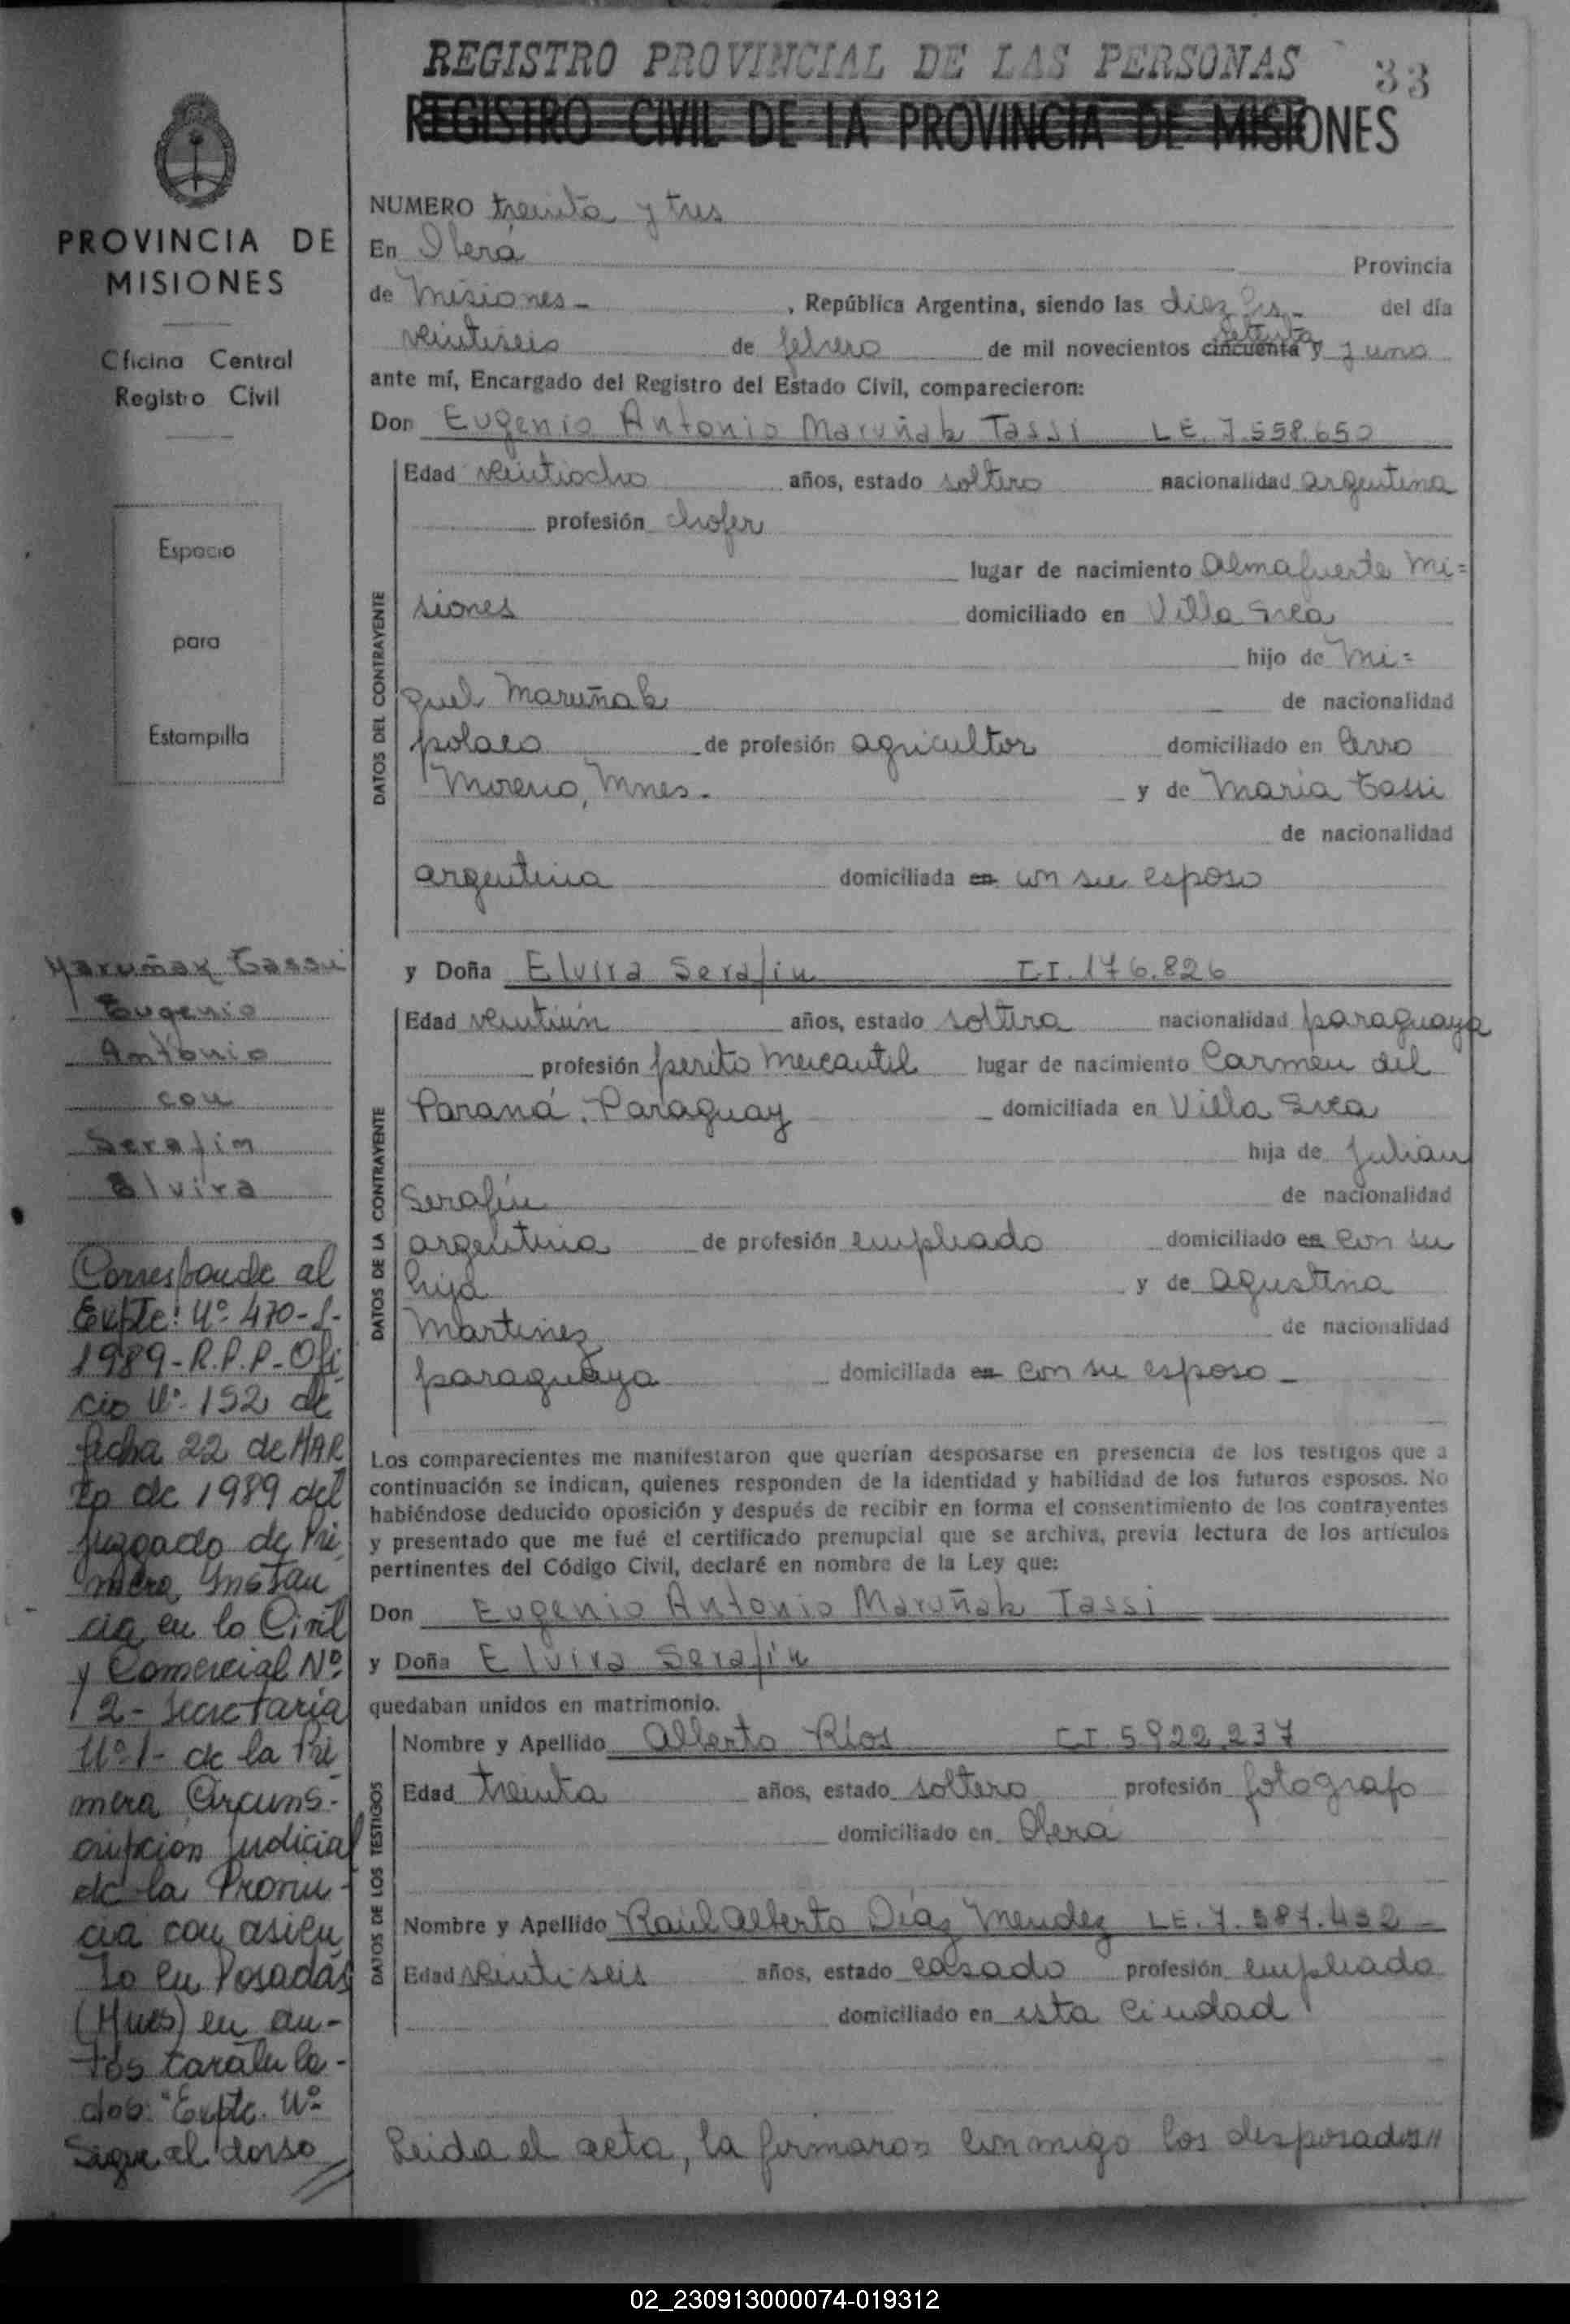 REGISTRO PROVINCIAL DE LAS PERSONAS
33
REGISTRO CIVIL DE LA PROVINCIA DE MISIONES
PROVINCIA DE
MISIONES
Oficina Central
Registro Civil
Espacio
para
Estampilla
Maruñak Tassi
Eugenio
Antonio
con
Serafin
Elvira
Corresponde al
Expte: Nº 470-S-
1989-R.P.P-Ofi
cio Nº 152 de
fecha 22 de MAR
zo de 1989 del
juzgado de Pri
mera Instan
cia en lo Civil
y Comercial Nº
2- Secretaría
Nº 1- de la Pri
mera Circuns-
cripción Judicial
de la Provin-
cia con asien
to en Posadas
(Mnes) en au-
tos caratula-
dos: "Expte. Nº
Sigue al dorso
NUMERO treinta y tres
En Oberá Provincia
de Misiones- , República Argentina, siendo las diez hs.- del día
veintiseis de febrero de mil novecientos cincuenta y setenta y uno
ante mí, Encargado del Registro del Estado Civil, comparecieron:
Don Eugenio Antonio Maruñak Tassi LE. 7.558.650
DATOS DEL CONTRAYENTE
Edad veintiocho años, estado soltero nacionalidad argentina
profesión chofer
lugar de nacimiento Almafuerte Mi=
siones domiciliado en Villa Svea
hijo de Mi=
guel Maruñak de nacionalidad
polaco de profesión agricultor domiciliado en Cerro
Moreno, Mnes. y de María Tassi
de nacionalidad
argentina domiciliada en con su esposo
y Doña Elvira Serafín C.I. 176.826
DATOS DE LA CONTRAYENTE
Edad veintiún años, estado soltera nacionalidad paraguaya
profesión perito mercantil lugar de nacimiento Carmen del
Paraná. Paraguay domiciliada en Villa Svea
hija de Julian
Serafín de nacionalidad
argentina de profesión empleado domiciliado en con su
hija y de Agustina
Martinez de nacionalidad
paraguaya domiciliada en con su esposo-
Los comparecientes me manifestaron que querían desposarse en presencia de los testigos que a
continuación se indican, quienes responden de la identidad y habilidad de los futuros esposos. No
habiéndose deducido oposición y después de recibir en forma el consentimiento de los contrayentes
y presentado que me fué el certificado prenupcial que se archiva, previa lectura de los artículos
pertinentes del Código Civil, declaré en nombre de la Ley que:
Don Eugenio Antonio Maruñak Tassi
y Doña Elvira Serafín
quedaban unidos en matrimonio.
DATOS DE LOS TESTIGOS
Nombre y Apellido Alberto Ríos C.I. 5922.237
Edad treinta años, estado soltero profesión fotografo
domiciliado en Oberá
Nombre y Apellido Raúl Alberto Díaz Mendez LE. 7.587.452-
Edad veintiseis años, estado casado profesión empleado
domiciliado en esta ciudad
Leida el acta, la firmaron conmigo los desposados//
02_230913000074-019312